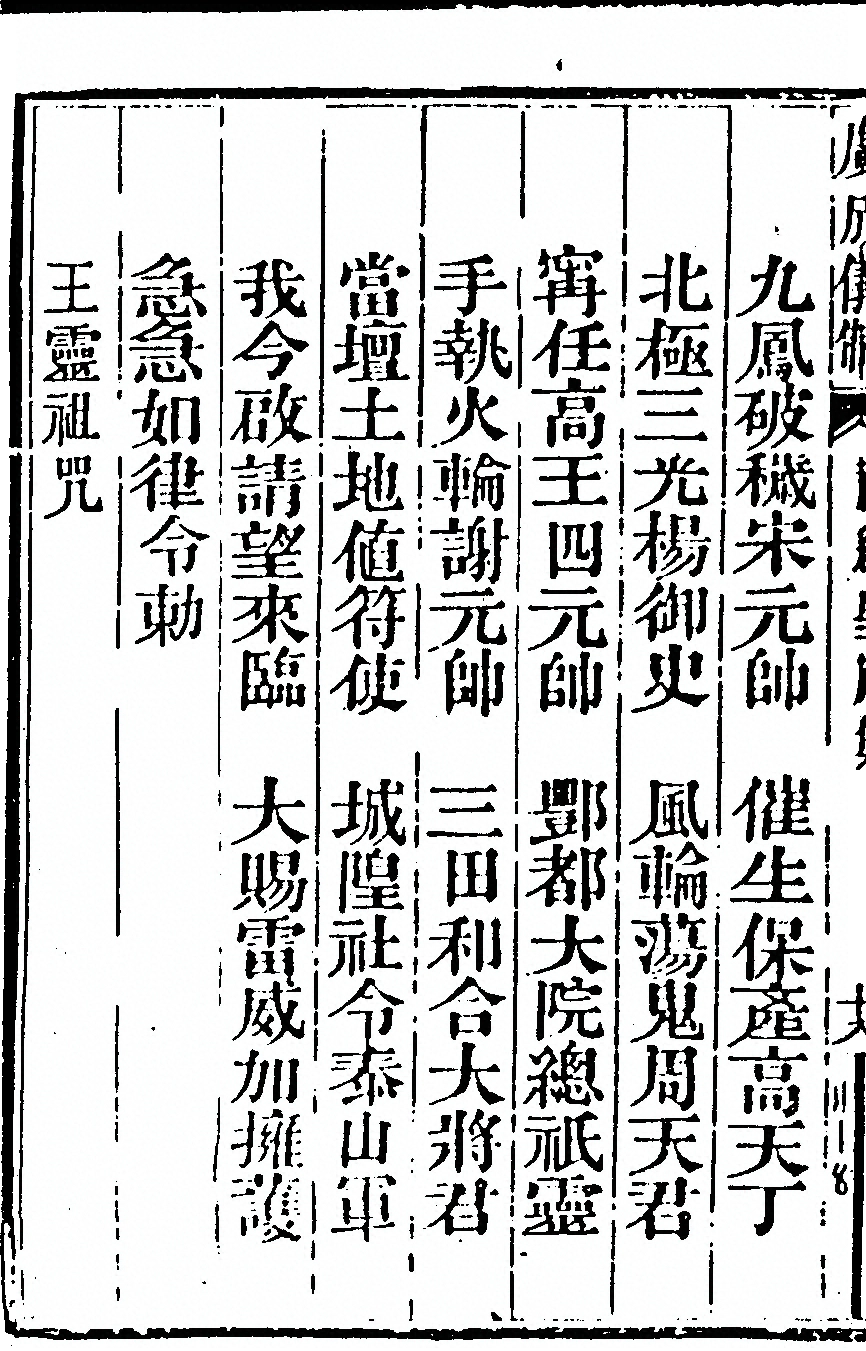 九鳳破穢宋元帥　催生保產高天丁
北極三光楊御史　風輪蕩鬼周天君
甯任高王四元帥　酆都大院總祇靈
手執火輪謝元帥　三田和合大將君
當壇土地値符使　城隍社令泰山軍
我今啟請望來臨　大賜雷威加擁護
急急如律令勅
王靈祖咒